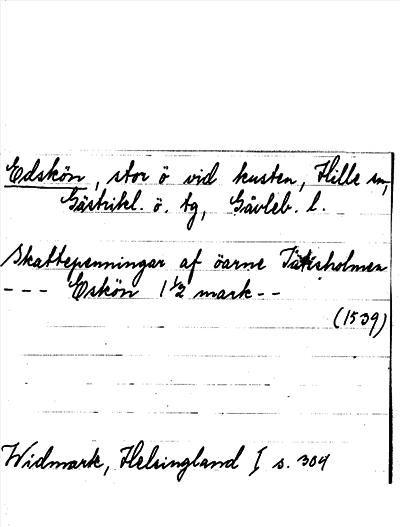 Edskön, stor ö vid kusten, Hille sn,
Gästrikl. ö. tg, Gävleb. l.
Skattepenningar af öarne
--- Eskön 1 1/2 mark --
(1539)
Widmark, Helsingland I s. 309